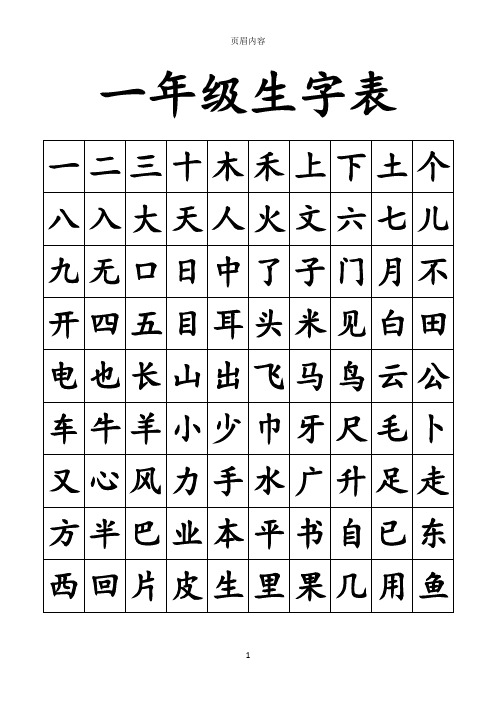 页眉内容
一年级生字表
一 二 三 十 木 禾 上 下 土 个
八 入 大 天 人 火 文 六 七 儿
九 无 口 日 中 了 子 门 月 不
开 四 五 目 耳 头 米 见 白 田
电 也 长 山 出 飞 马 鸟 云 公
车 牛 羊 小 少 巾 牙 尺 毛 卜
又 心 风 力 手 水 广 升 足 走
方 半 巴 业 本 平 书 自 已 东
西 回 片 皮 生 里 果 几 用 鱼
1